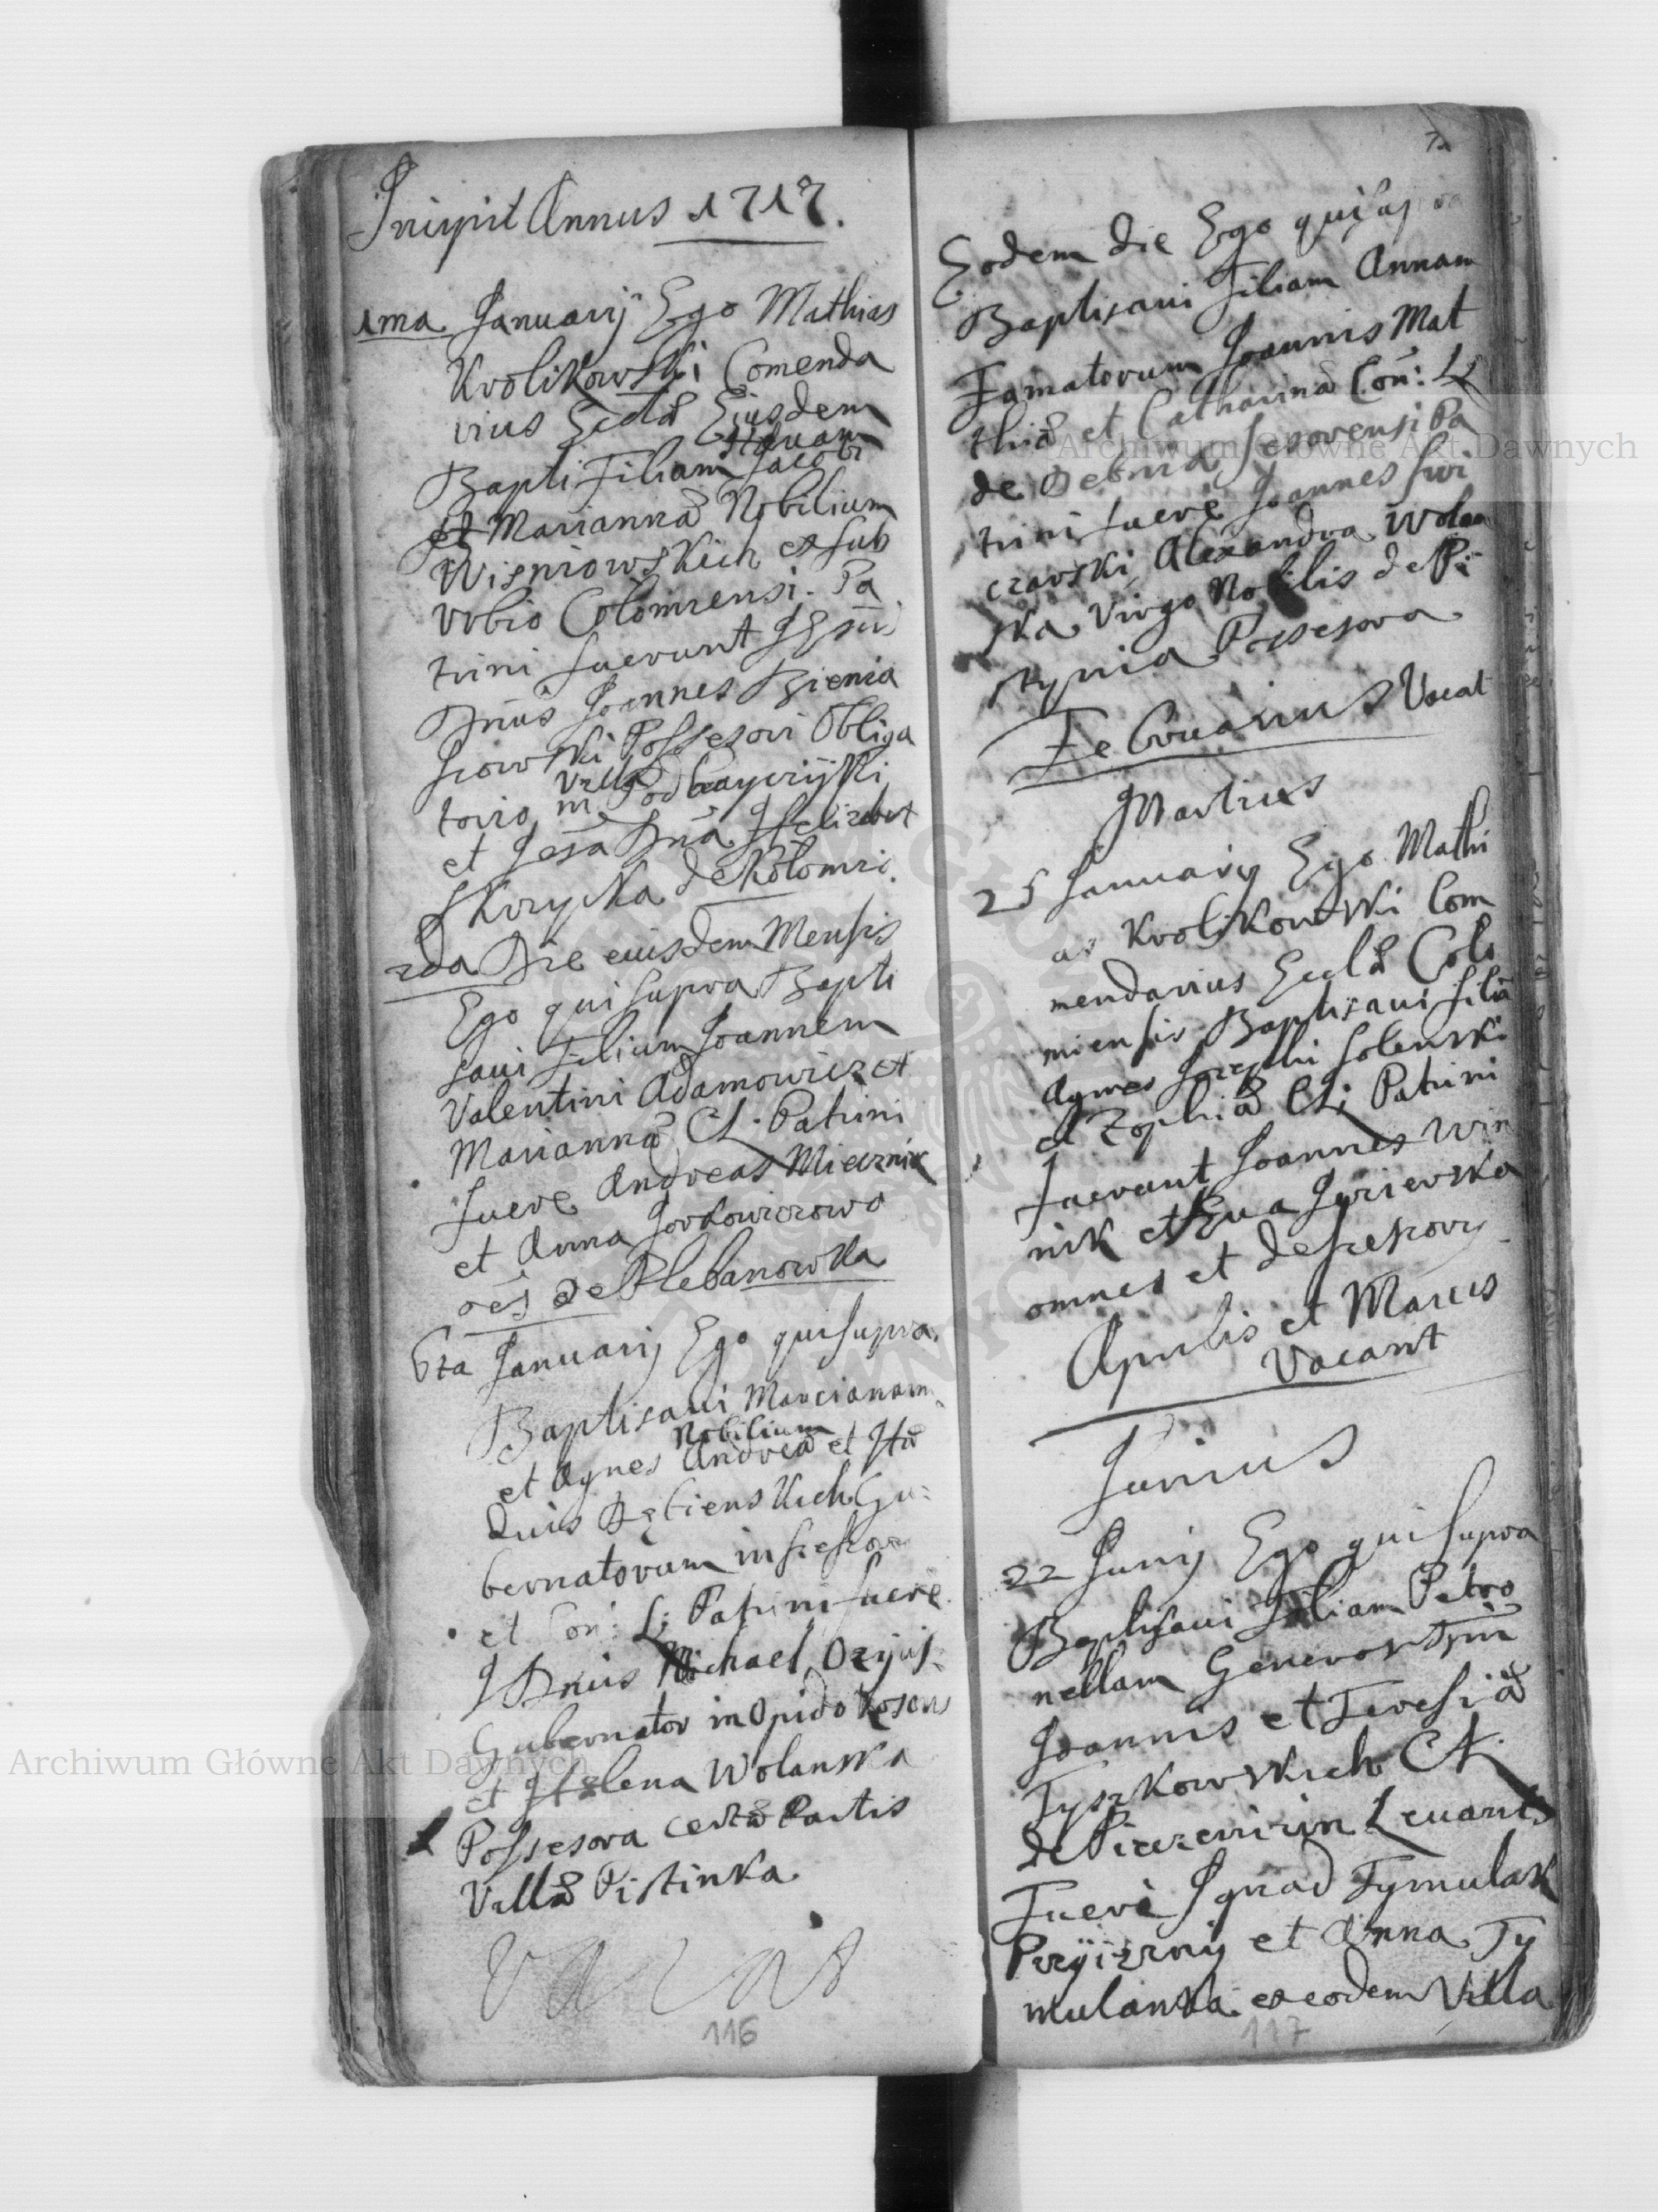 Incipit Annus 1717.
1ma Januarij Ego Mathias
Krolikowski Comenda
rius Eccla Eiusdem
Bapti Filiam Jacobi
et Marianna Nobilium
Wisniowskich ex sub
Urbio Colomiensi. Pa
trini fuerunt
Dnus Joannes Bienia
szowski Possesori Obliga
torio in Villa
et Dna Helizabet
Skorycka de Kolomri.
2da Die eiusdem Mensis
Ego qui supra Bapti
saui Filium Joannem
Valentini Adamowicz et
Marianna CL. Patrini
fuere Andreas Miecznik
et Anna Jorkowiczowa
oes de Plebanowka
6ta Januarij Ego qui supra
Baptisaui Marcianam
et Agnes Nobilium Andrea et He
duis Gu:
bernatorum in
et Con: L: Patrini fuere
J Dnus Michael
Gubernator in Opido Kosow
et Helena Wolanska
Possesora certa Partis
Villa Pistinka.
Vacat
116
7
Eodem Die Ego qui sup
Baptisaui Filiam Annam
Famatorum Joannis Mat
thia et Catharina Con: L:
de Pa
trini fuere Joannes
Alexandra Wolan
ska Virgo Nobilis de Pi
stynia Possesora
Februarius Vacat
Martius
25 Januarij Ego Mathi
as Krolikowski Com
mendarius Eccla Colo
miensis Baptisaui filia
Agnes Josephi Solenski
et Zophia CL: Patrini
fuerunt Joannes Win
nik et Eua
omnes et de
Aprilis et Marcis
Vacant
Junius
22 Junij Ego qui supra
Baptisaui Filiam Petro
nellam Generos
Joannis et Teresia
Tyszkowskich CL.
de Leuantes
Fuere Ignad Tymulak
et Anna Ty
mulanka ex eodem Villa
117
Archiwum Główne Akt Dawnych
Archiwum Główne Akt Dawnych